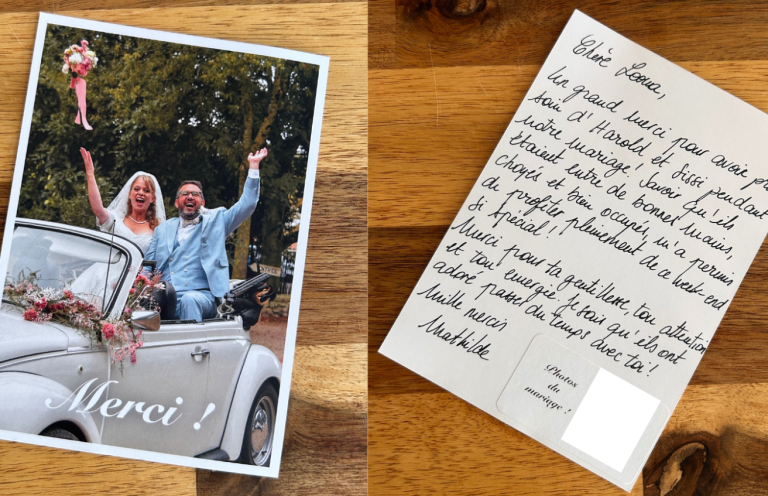 Merci !
Chère Leena,
Un grand merci pour avoir pris
soin d'Harold et Sissi pendant
notre mariage! Savoir qu'ils
étaient entre de bonnes mains,
choyés et bien occupés, m'a permis
de profiter pleinement de ce week-end
si spécial!
Merci pour ta gentillesse, ton attention
et ton énergie. Je sais qu'ils ont
adoré passer du temps avec toi!
Mille mercis
Mathilde
Photos
du
mariage !